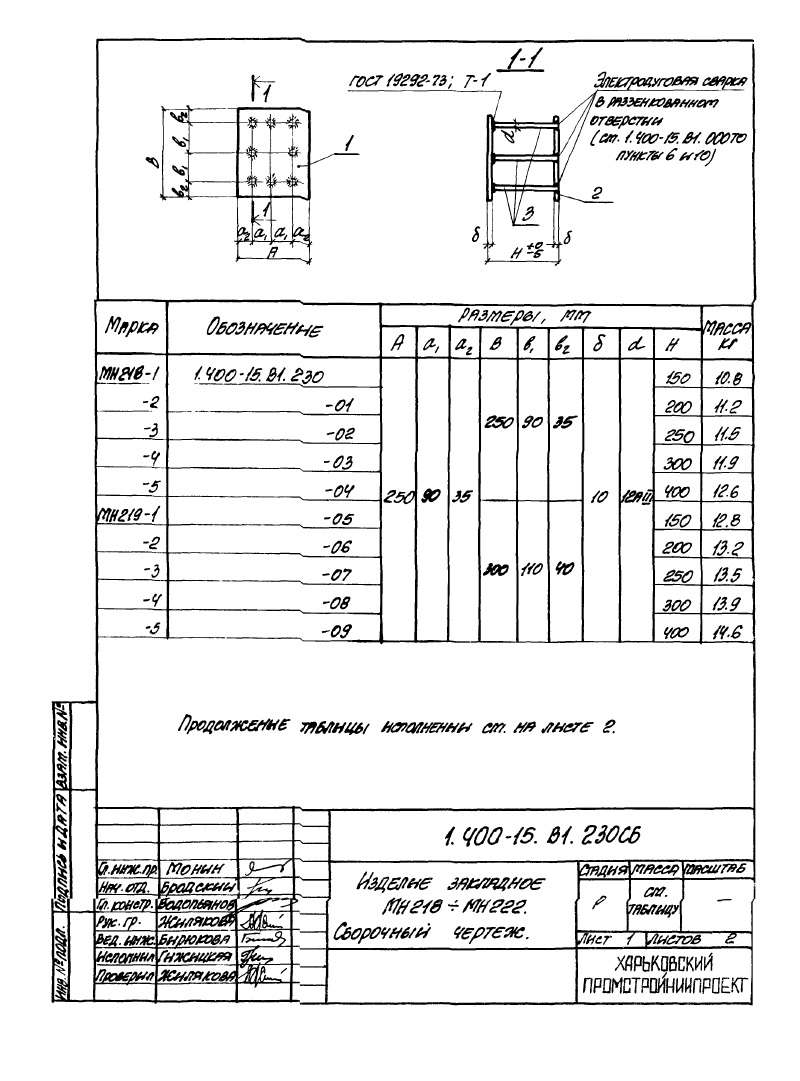 1-1
ГОСТ 19292-73; Т-1
Электродуговая сварка
в раззенкованном
отверстии
(см. 1.400-15.В1.000ТО
пункты 6 и 10)
1
1
1
2
3
d
В
в₂
в₁
в₁
в₂
а₂ а₁ а₁ а₂
А
δ
δ
Н +0 -5
Марка Обозначение Размеры, мм Масса кг
А а₁ а₂ В в₁ в₂ δ d Н
МН218-1 1.400-15.В1.230 150 10.8
-2 -01 200 11.2
250 90 35
-3 -02 250 11.5
-4 -03 300 11.9
-5 -04 400 12.6
250 90 35 10 12АIII
МН219-1 -05 150 12.8
-2 -06 200 13.2
300 110 40
-3 -07 250 13.5
-4 -08 300 13.9
-5 -09 400 14.6
Продолжение таблицы исполнений см. на листе 2.
Взам. инв.№
Подпись и дата
Инв.№ подл.
1.400-15.В1.230СБ
Гл.инж.пр. Монин
Нач. отд. Бродский
Гл.констр. Водопьянов
Рук. гр. Жилякова
Вед. инж. Бирюкова
Исполнил Гижицкая
Проверил Жилякова
Изделие закладное
МН218 ÷ МН222.
Сборочный чертеж.
Стадия Масса Масштаб
Р см. таблицу —
Лист 1 Листов 2
ХАРЬКОВСКИЙ
ПРОМСТРОЙНИИПРОЕКТ